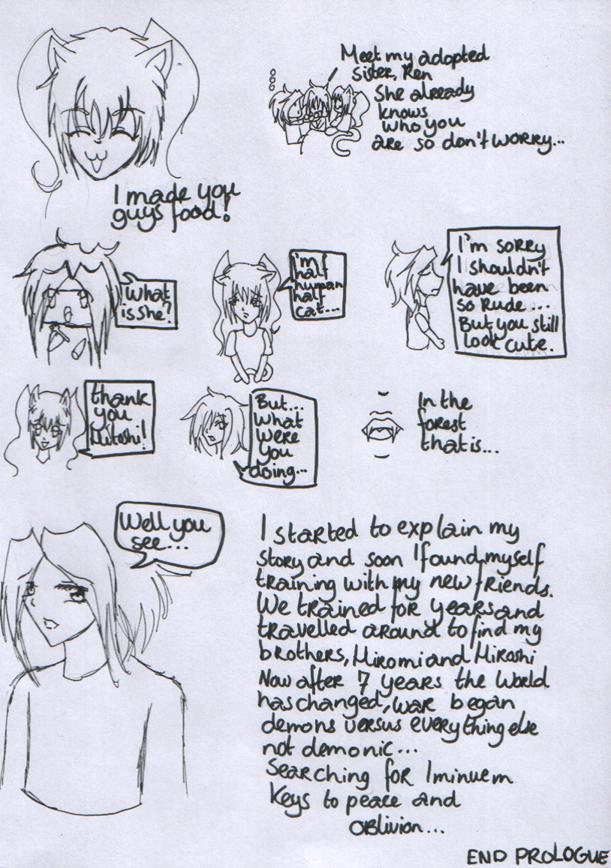 Meet my adopted
sister, Ren
She already
knows
who you
are so don't worry...
I made you
guys food!
What
is she?
I'm
half
human
half
cat...
I'm sorry
I shouldn't
have been
so rude...
But you still
look cute.
thank
you
Hitoshi!
But...
what
were
you
doing...
In the
forest
that is...
Well you
see...
I started to explain my
story and soon I found myself
training with my new friends.
We trained for years and
travelled around to find my
brothers, Hiromi and Hiroshi
Now after 7 years the world
has changed, war began
demons versus everything else
not demonic...
Searching for Iminuem
Keys to peace and
oblivion...
END PROLOGUE